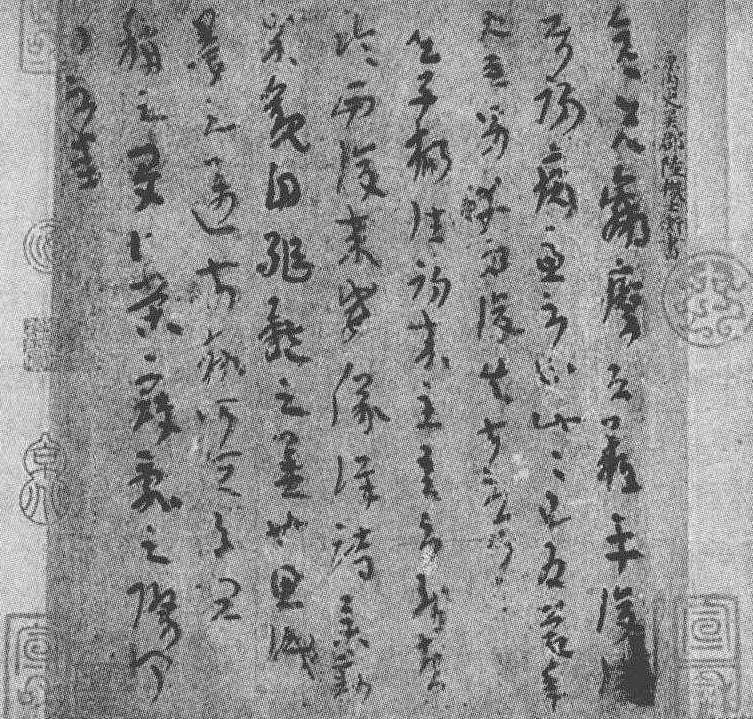 內史吳郡陸機士衡書
彥先羸瘵恐難平復往
屬初病慮不止此此已為慶承
使唯男幸為復失前憂耳
吳子楊往初來主吾不能盡
臨西復來威儀詳跱舉動
成觀自軀體之美也思識
量之邁前執所恒有宜
稱之夏伯榮寇亂之際聞
問不悉